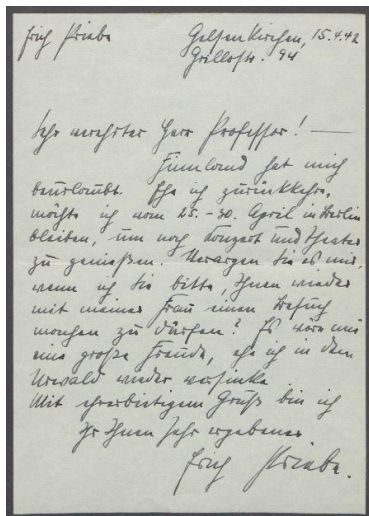 Erich Kriebe
Gelsenkirchen, 15.4.42
Grillostr. 94
Sehr verehrter Herr Professor! —
Finnland hat mich
beurlaubt. Ehe ich zurückkehre,
möchte ich vom 25.-30. April in Berlin
bleiben, um noch Konzert und Theater
zu genießen. Verargen Sie es mir,
wenn ich Sie bitte, Ihnen wieder
mit meiner Frau einen Besuch
machen zu dürfen? Es wäre mir
eine große Freude, ehe ich in dem
Urwald wieder versinke
Mit ehrerbietigem Gruß bin ich
Ihr Ihnen sehr ergebener
Erich Kriebe.